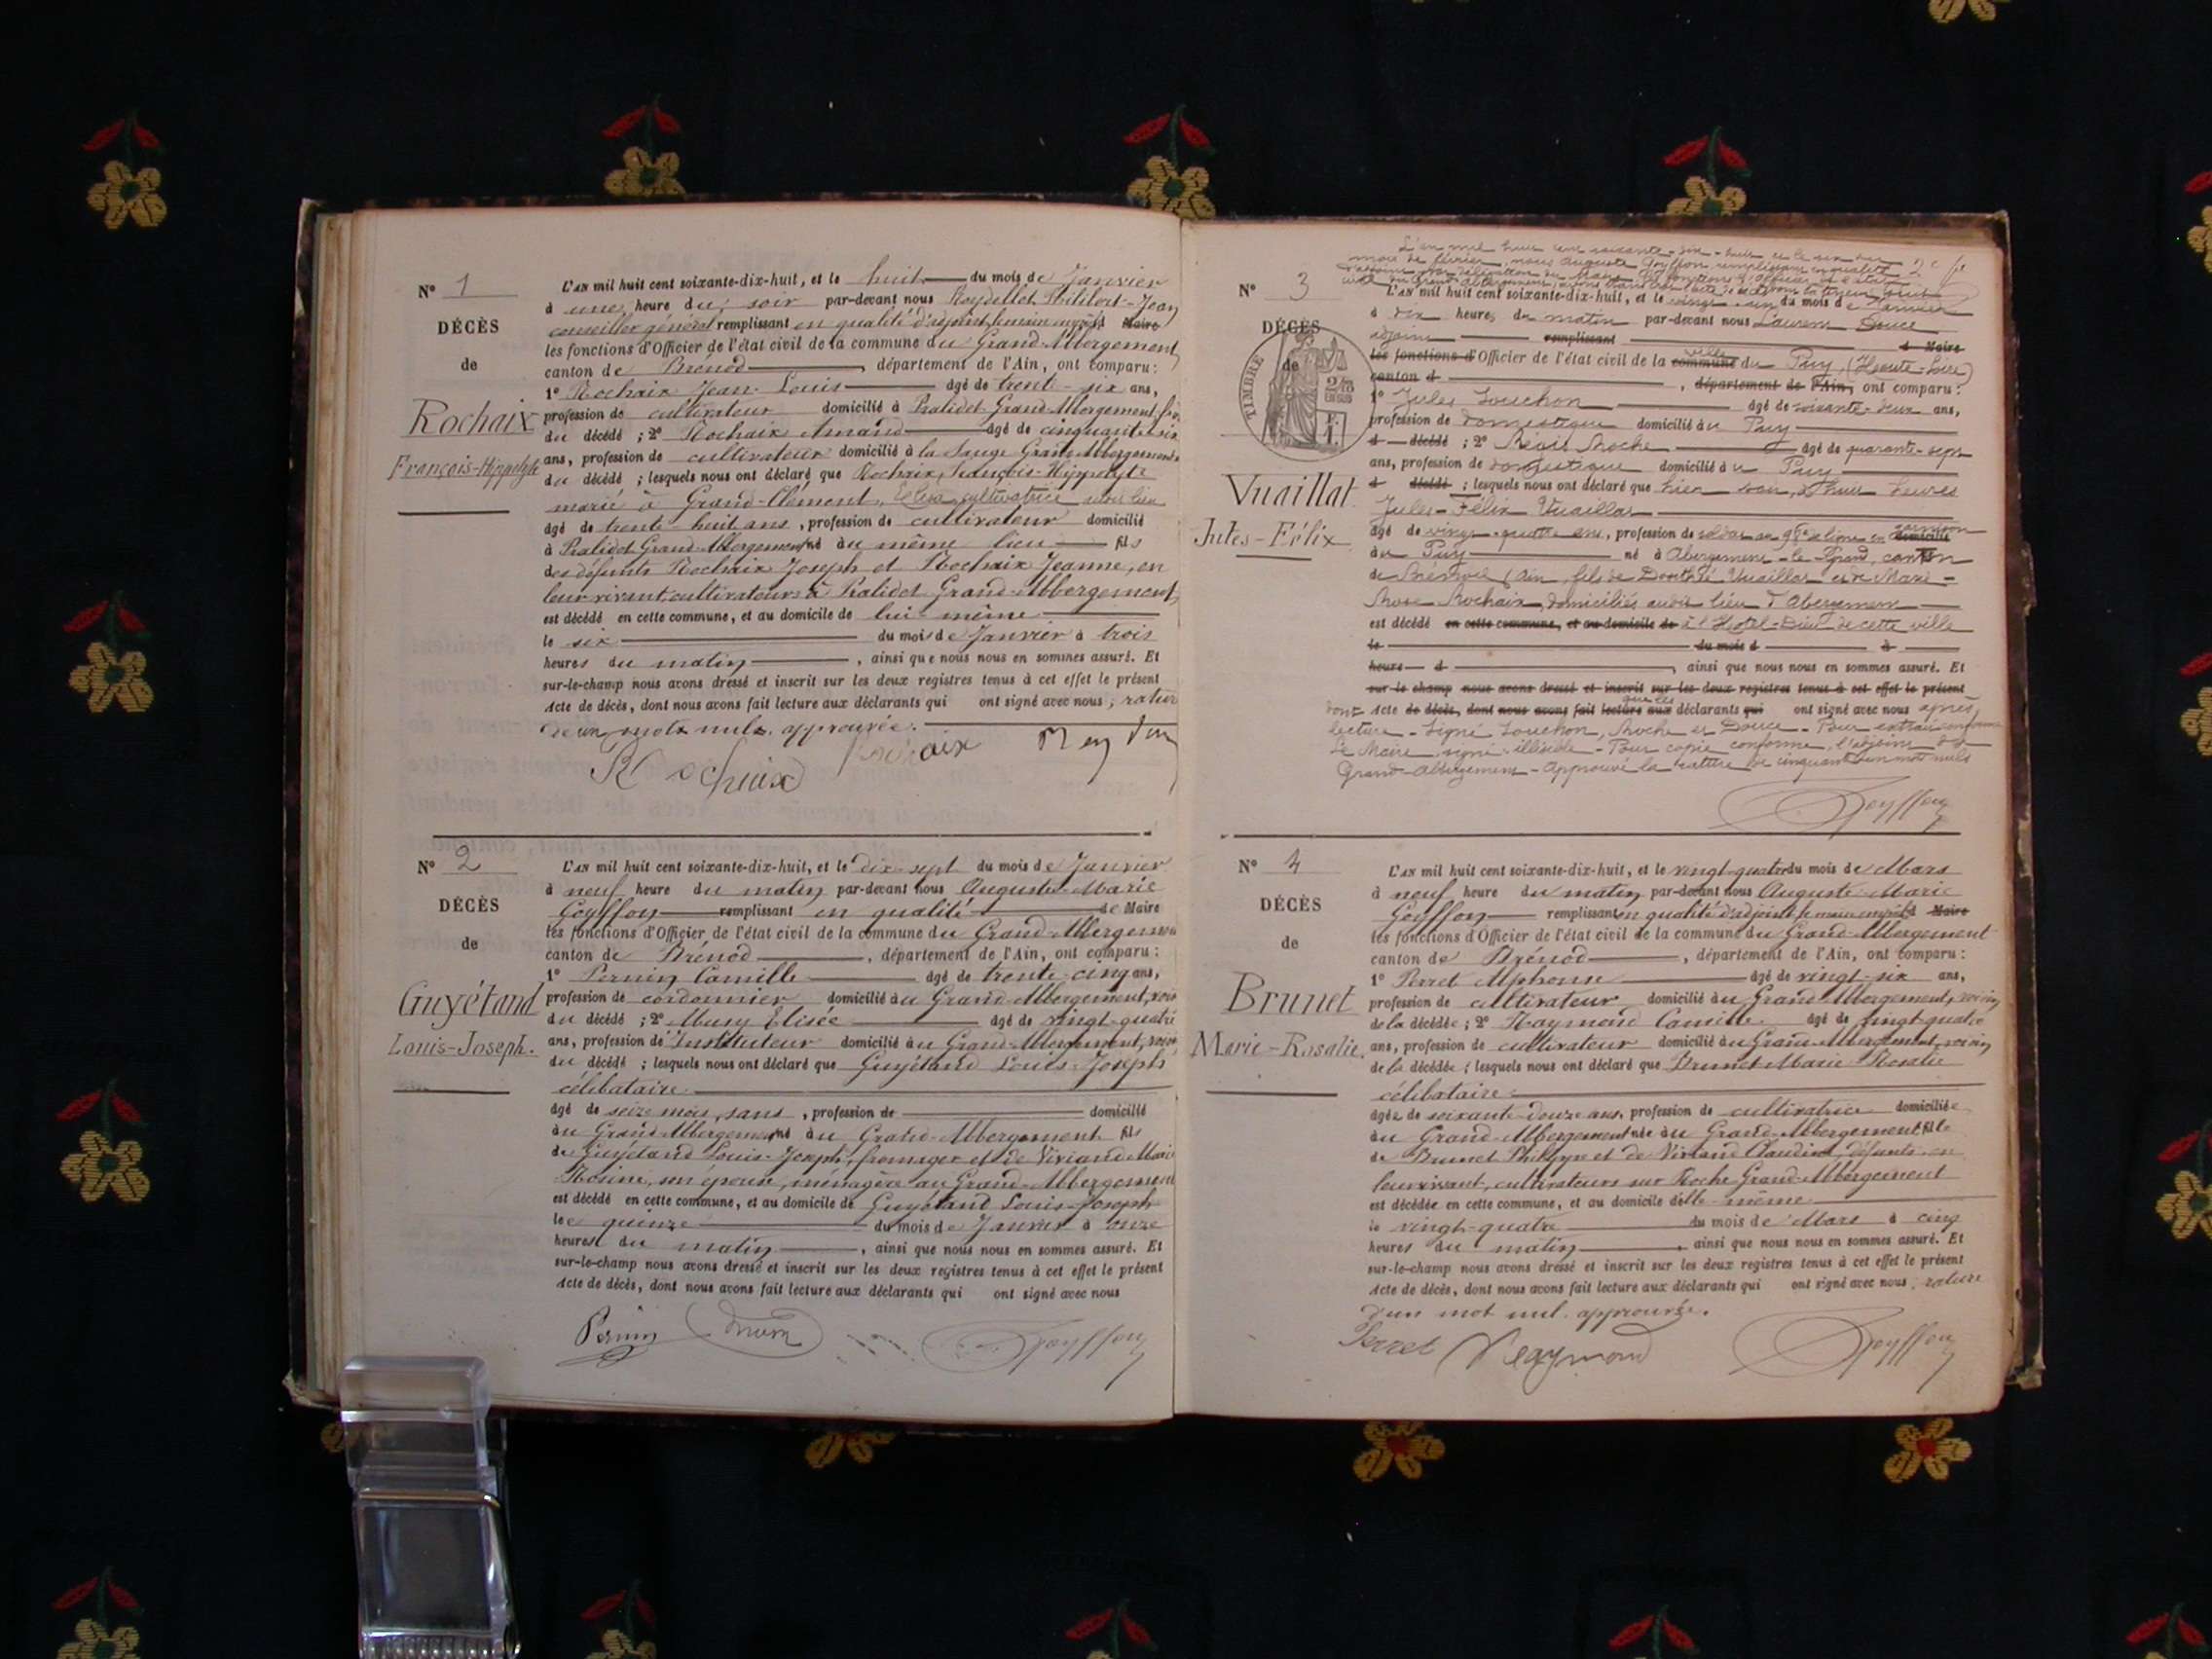 N° 1
DÉCÈS
de
Rochaix
François-Hippolyte
L'AN mil huit cent soixante-dix-huit, et le huit du mois de Janvier
à une heure du soir par-devant nous Philibert-Jean
conseiller général remplissant en qualité d'adjoint, le maire empêché Maire
les fonctions d'Officier de l'état civil de la commune du Grand-Abbergement
canton de Brénod, département de l'Ain, ont comparu :
1° Rochaix Jean-Louis âgé de trente-six ans,
profession de cultivateur domicilié à Pralidet Grand-Abbergement
du décédé ; 2° Rochaix Amand âgé de cinquante-six
ans, profession de cultivateur domicilié à la Grand-Abbergement
du décédé ; lesquels nous ont déclaré que Rochaix, François-Hippolyte
marié à Grand-Clément, cultivatrice
âgé de trente huit ans, profession de cultivateur domicilié
à Pralidet Grand-Abbergement né au même lieu fils
des défunts Rochaix Joseph et Rochaix Jeanne, en
leur vivant, cultivateurs à Pralidet Grand-Abbergement,
est décédé en cette commune, et au domicile de lui-même
le six du mois de Janvier à trois
heures du matin, ainsi que nous nous en sommes assuré. Et
sur-le-champ nous avons dressé et inscrit sur les deux registres tenus à cet effet le présent
Acte de décès, dont nous avons fait lecture aux déclarants qui ont signé avec nous ; rature
de un mots nuls, approuvée.
Rochaix Rochaix
N° 2
DÉCÈS
de
Guyétand
Louis-Joseph.
L'AN mil huit cent soixante-dix-huit, et le dix-sept du mois de Janvier
à neuf heure du matin par-devant nous Auguste-Marie
Goyffon remplissant en qualité de Maire
les fonctions d'Officier de l'état civil de la commune du Grand-Abbergement
canton de Brénod, département de l'Ain, ont comparu :
1° Pernin Camille âgé de trente-cinq ans,
profession de cordonnier domicilié au Grand-Abbergement, voisin
du décédé ; 2° Elisée âgé de vingt-quatre
ans, profession de Instituteur domicilié au Grand-Abbergement, voisin
du décédé ; lesquels nous ont déclaré que Guyétand Louis-Joseph
célibataire
âgé de seize mois, sans, profession de domicilié
au Grand-Abbergement né au Grand-Abbergement fils
de Guyétand Louis-Joseph, fromager et de Viviand Marie
Rosine, son épouse, ménagère au Grand-Abbergement
est décédé en cette commune, et au domicile de Guyétand Louis-Joseph
le quinze du mois de Janvier à onze
heures du matin, ainsi que nous nous en sommes assuré. Et
sur-le-champ nous avons dressé et inscrit sur les deux registres tenus à cet effet le présent
Acte de décès, dont nous avons fait lecture aux déclarants qui ont signé avec nous
Pernin Goyffon
L'an mil huit cent soixante-dix-huit et le six du
mois de février, nous Auguste Goyffon remplissant en qualité
N° 3
DÉCÈS
de
TIMBRE
Vuaillat
Jules-Félix
L'AN mil huit cent soixante-dix-huit, et le vingt-un du mois de Janvier
à dix heures du matin par-devant nous Laurent Douce
adjoint remplissant d Maire
les fonctions d'Officier de l'état civil de la commune ville du Puy, (Haute-Loire)
canton d, département de l'Ain, ont comparu :
1° Jules Souchon âgé de soixante-deux ans,
profession de domestique domicilié au Puy
d décédé ; 2° Régis Roche âgé de quarante-sept
ans, profession de domestique domicilié au Puy
d décédé ; lesquels nous ont déclaré que hier soir, à huit heures
Jules-Félix Vuaillat
âgé de vingt-quatre ans, profession de soldat au de ligne en garnison domicilié
au Puy né à Abergement-le-Grand, canton
de Brénod (Ain, fils de Dorothé Vuaillat et de Marie-
Rose Rochaix, domiciliés audit lieu d'Abergement
est décédé en cette commune, et au domicile de à l'Hôtel-Dieu de cette ville
le du mois d à
heure d, ainsi que nous nous en sommes assuré. Et
sur-le-champ nous avons dressé et inscrit sur les deux registres tenus à cet effet le présent
dont Acte de décès, dont nous avons fait lecture aux que les déclarants qui ont signé avec nous après
lecture - Signé Souchon, Roche et Douce - Pour extrait conforme
Le Maire, signé illisible - Pour copie conforme, l'adjoint du
Grand-Abbergement - Approuvé la rature de cinquante un mots nuls
Goyffon
N° 4
DÉCÈS
de
Brunet
Marie-Rosalie.
L'AN mil huit cent soixante-dix-huit, et le vingt-quatre du mois de Mars
à neuf heure du matin par-devant nous Auguste-Marie
Goyffon remplissant en qualité d'adjoint, le maire empêché Maire
les fonctions d'Officier de l'état civil de la commune du Grand-Abbergement
canton de Brénod, département de l'Ain, ont comparu :
1° Perret Alphonse âgé de vingt-six ans,
profession de cultivateur domicilié au Grand-Abbergement, voisin
de la décédée ; 2° Raymond Camille âgé de vingt-quatre
ans, profession de cultivateur domicilié au Grand-Abbergement, voisin
de la décédée ; lesquels nous ont déclaré que Brunet Marie-Rosalie
célibataire
âgée de soixante-douze ans, profession de cultivatrice domiciliée
au Grand-Abbergement née au Grand-Abbergement fille
de Brunet Philippe et de Viviand Claudine, défunts, en
leur vivant, cultivateurs sur Roche Grand-Abbergement
est décédée en cette commune, et au domicile d'elle-même
le vingt-quatre du mois de Mars à cinq
heures du matin, ainsi que nous nous en sommes assuré. Et
sur-le-champ nous avons dressé et inscrit sur les deux registres tenus à cet effet le présent
Acte de décès, dont nous avons fait lecture aux déclarants qui ont signé avec nous, rature
d'un mot nul approuvée.
Perret Raymond Goyffon